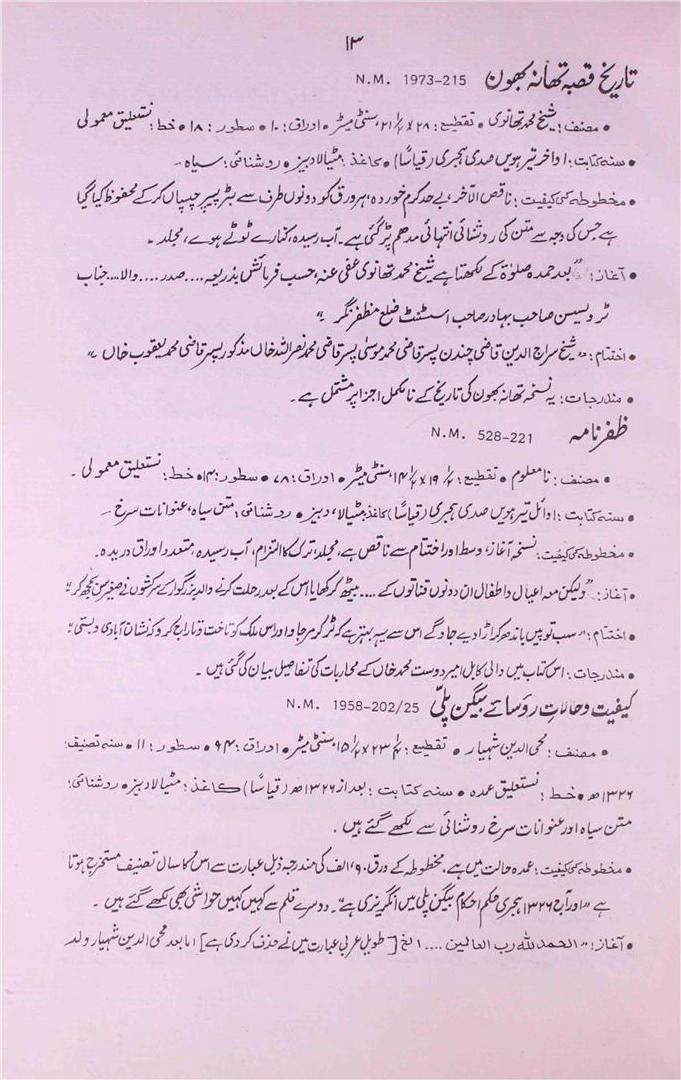 ۱۳
تاریخ قصبہ تھانہ بھون N.M. 1973-215
● مصنف: شیخ محمد تھانوی ● تقطیع: ۲۸ × ۲۱/۲ سنٹی میٹر ● اوراق: ۱۰ ● سطور: ۱۸ ● خط: نستعلیق معمولی
● سنہ کتابت: اواخر تیرہویں صدی ہجری (قیاسًا) ● کاغذ: مٹیالا دبیز ● روشنائی: سیاہ ۔
● مخطوطہ کی کیفیت: ناقص الآخر، بے حد کرم خوردہ، ہر ورق کو دونوں طرف سے بٹر پیپر چسپاں کر کے محفوظ کیا گیا
ہے جس کی وجہ سے متن کی روشنائی انتہائی مدھم پڑ گئی ہے۔ آب رسیدہ، کنارے ٹوٹے ہوے، مجلد ۔
● آغاز: "بعد حمدہ صلوٰۃ کے لکھتا ہے شیخ محمد تھانوی عفی عنہ، حسب فرمائش بذریعہ .... صدر .... والا .... جناب
ٹرویسین صاحب بہادر صاحب اسسٹنٹ ضلع مظفر نگر"
● اختتام: "شیخ سراج الدین قاضی چندن پسر قاضی محمد موسیٰ پسر قاضی محمد نصراللہ خاں مذکور پسر قاضی محمد یعقوب خاں"
● مندرجات: یہ نسخہ تھانہ بھون کی تاریخ کے نامکمل اجزا پر مشتمل ہے ۔
ظفر نامہ N.M. 528-221
● مصنف: نامعلوم ● تقطیع: ۱۹/۲ × ۱۴/۲ سنٹی میٹر ● اوراق: ۷۸ ● سطور: ۱۴ ● خط: نستعلیق معمولی ۔
● سنہ کتابت: اوائل تیرہویں صدی ہجری (قیاسًا) کاغذ: مٹیالا، دبیز ● روشنائی: متن سیاہ، عنوانات سرخ ۔
● مخطوطہ کی کیفیت: نسخہ آغاز، وسط اور اختتام سے ناقص ہے، مجلد، ترک کا التزام، آب رسیدہ، متعدد اوراق دریدہ.
● آغاز: "ولیکن معہ اعیال و اطفال ان دونوں قناتوں کے .... بیٹھ کر کھایا اس کے بعد رحلت کرنے والد بزرگوار کے سرکشوں نے صغیر سن سمجھ کر"
● اختتام: "سب توپیں باندھ کر اڑا دیے جاوگے اس سے یہ بہتر ہے کہ لڑ کو مرجاو اور اس ملک کو تاخت و تاراج کرو کہ نشان آبادی و بستی"
● مندرجات: اس کتاب میں والی کابل امیر دوست محمد خاں کے محاربات کی تفاصیل بیان کی گئی ہیں ۔
کیفیت و حالات رؤسائے بیگن پلّی N.M. 1958-202/25
● مصنف: محی الدین شہیار ● تقطیع: ۲۳/۴ × ۱۵/۲ سنٹی میٹر ● اوراق: ۹۴ ● سطور: ۱۱ ● سنہ تصنیف:
۱۳۲۶ھ ● خط: نستعلیق عمدہ ● سنہ کتابت: بعد از ۱۳۲۶ھ (قیاسًا) کاغذ: مٹیالا دبیز ● روشنائی:
متن سیاہ اور عنوانات سرخ روشنائی سے لکھے گئے ہیں .
● مخطوطہ کی کیفیت: عمدہ حالت میں ہے، مخطوطہ کے ورق، ۹، الف کی مندرجہ ذیل عبارت سے اس کا سال تصنیف مستخرج ہوتا
ہے "اور آج ۱۳۲۶ ہجری حکم احکام بیگن پلی میں انگریزی ہے"۔ دوسرے قلم سے کہیں کہیں حواشی بھی لکھے گئے ہیں ۔
● آغاز: "الحمد للّٰہ رب العالمین .... الخ [طویل عربی عبارت میں نے حذف کر دی ہے] اما بعد محی الدین شہیار ولد